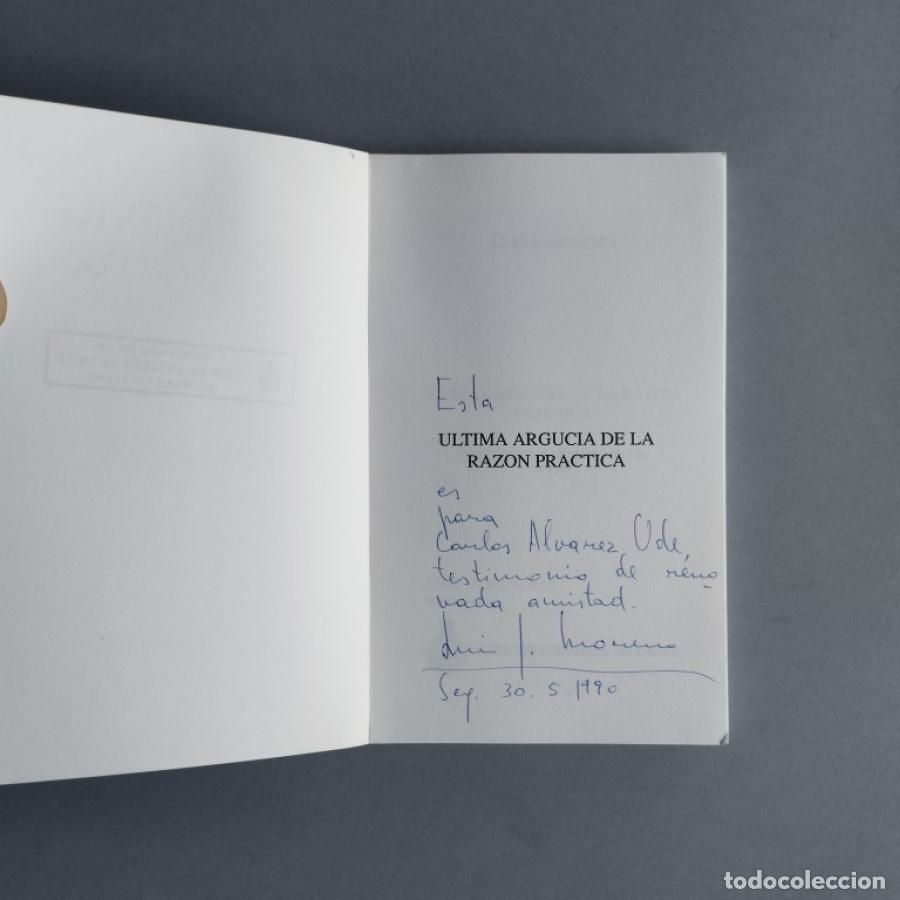 Esta
ULTIMA ARGUCIA DE LA
RAZON PRACTICA
es
para
Carlos Alvarez Ude,
testimonio de reno_
vada amistad.
Luis J. Moreno
Seg. 30.5.1990
todocoleccion